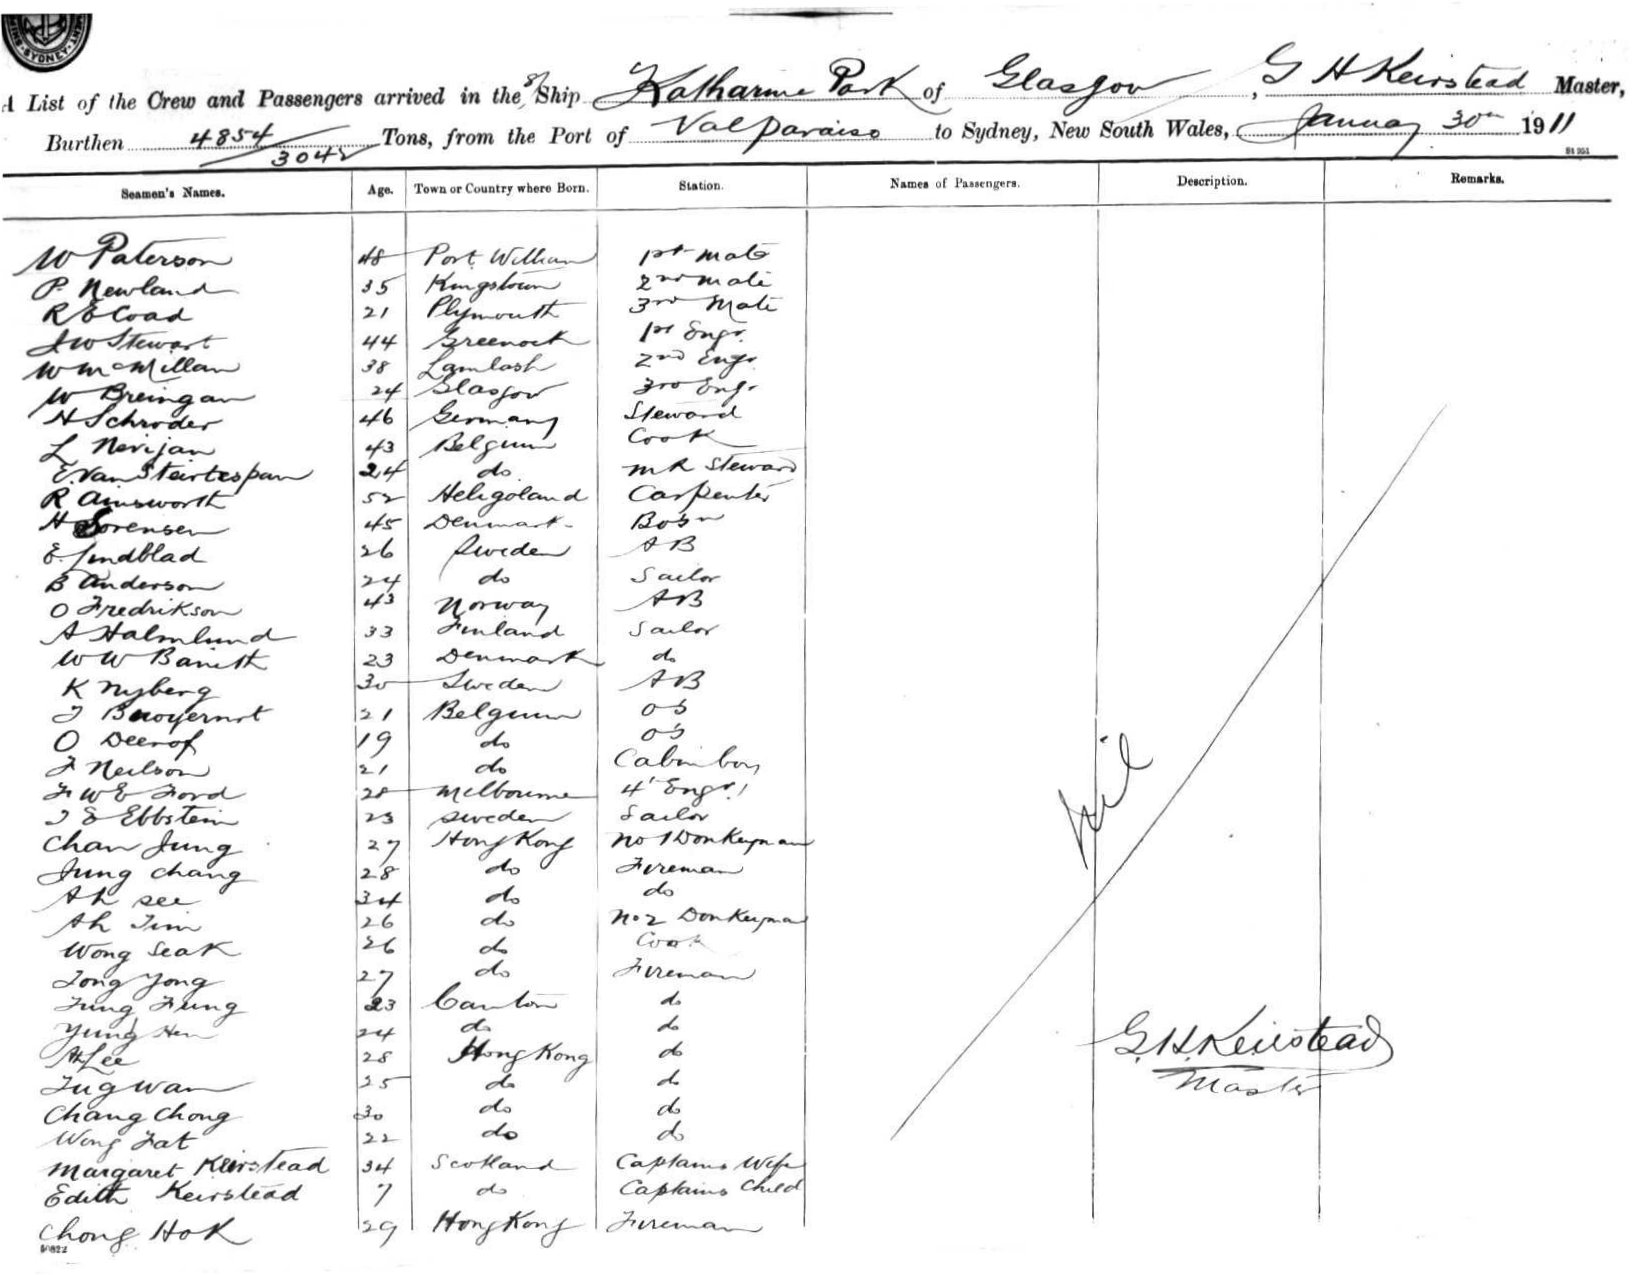 SYDNEY
A List of the Crew and Passengers arrived in the S/ Ship Katharine Park of Glasgow, G H Keirstead Master,
Burthen 4854/3042 Tons, from the Port of Valparaiso to Sydney, New South Wales, January 30th 1911
Seamen's Names. Age. Town or Country where Born. Station. Names of Passengers. Description. Remarks.
W Paterson 48 Port William 1st Mate
P. Newland 35 Kingstown 2nd Mate
R E Coad 21 Plymouth 3rd Mate
J W Stewart 44 Greenock 1st Engr.
W McMillan 38 Lamlash 2nd Engr
W Breingan 24 Glasgow 3rd Engr
H Schroder 46 Germany Steward
L Nerijan 43 Belgium Cook
E. Van Steirtespan 24 do M R Steward
R Ainsworth 52 Heligoland Carpenter
H Sorensen 45 Denmark Bosn
E. Lindblad 26 Sweden A B
B Anderson 24 do Sailor
O Fredrikson 43 Norway A B
A Halmlund 33 Finland Sailor
W W Banith 23 Denmark do
K Nyberg 30 Sweden A B
21 Belgium O S
O Deerof 19 do O S
F Neilson 21 do Cabin boy
F W E Ford 28 Melbourne 4th Engr
J E Ebbstein 23 Sweden Sailor
Chan Jung 27 Hong Kong No 1 Donkeyman
Jung Chang 28 do Fireman
Ah See 34 do do
Ah Tim 26 do No 2 Donkeyman
Wong Seak 26 do Cook
Tong Yong 27 do Fireman
Fung Fung 23 Canton do
Yung Hen 24 do do
Ah Lee 28 Hong Kong do
Tug Wan 25 do do
Chang Chong 30 do do
Wong Fat 22 do do
Margaret Keirstead 34 Scotland Captains Wife
Edith Keirstead 7 do Captains Child
Chong Hok 29 Hong Kong Fireman
Nil
G. H. Keirstead
Master